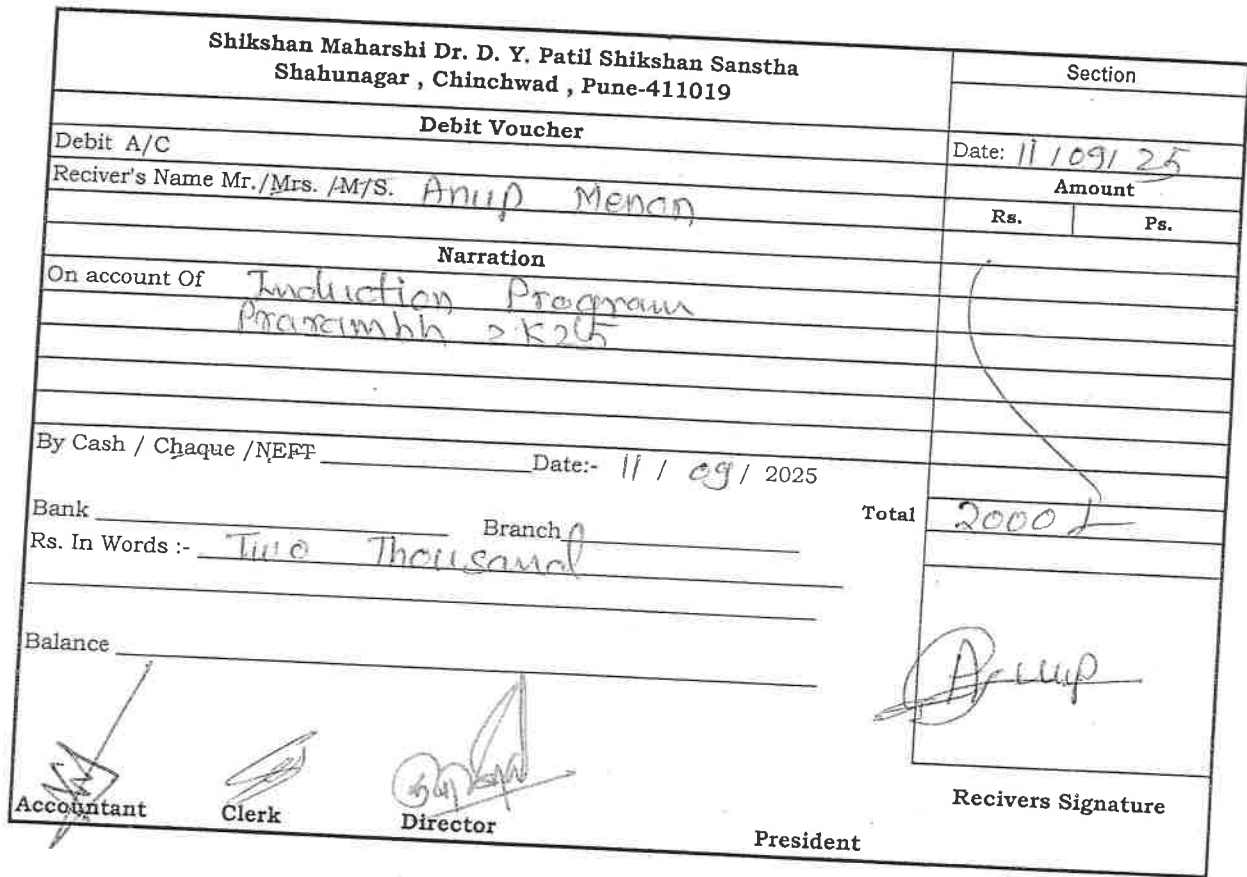 Shikshan Maharshi Dr. D. Y. Patil Shikshan Sanstha
Shahunagar , Chinchwad , Pune-411019
Section
Debit Voucher
Debit A/C
Date: 11 / 09 / 25
Reciver's Name Mr./Mrs. /M/S. Anup Menon
Amount
Rs. Ps.
Narration
On account Of Induction Program
Prarambh 2K25
By Cash / Chaque /NEFT Date:- 11 / 09 / 2025
Total 2000/-
Bank Branch
Rs. In Words :- Two Thousand
Balance
Anup
Accountant Clerk Director President Recivers Signature